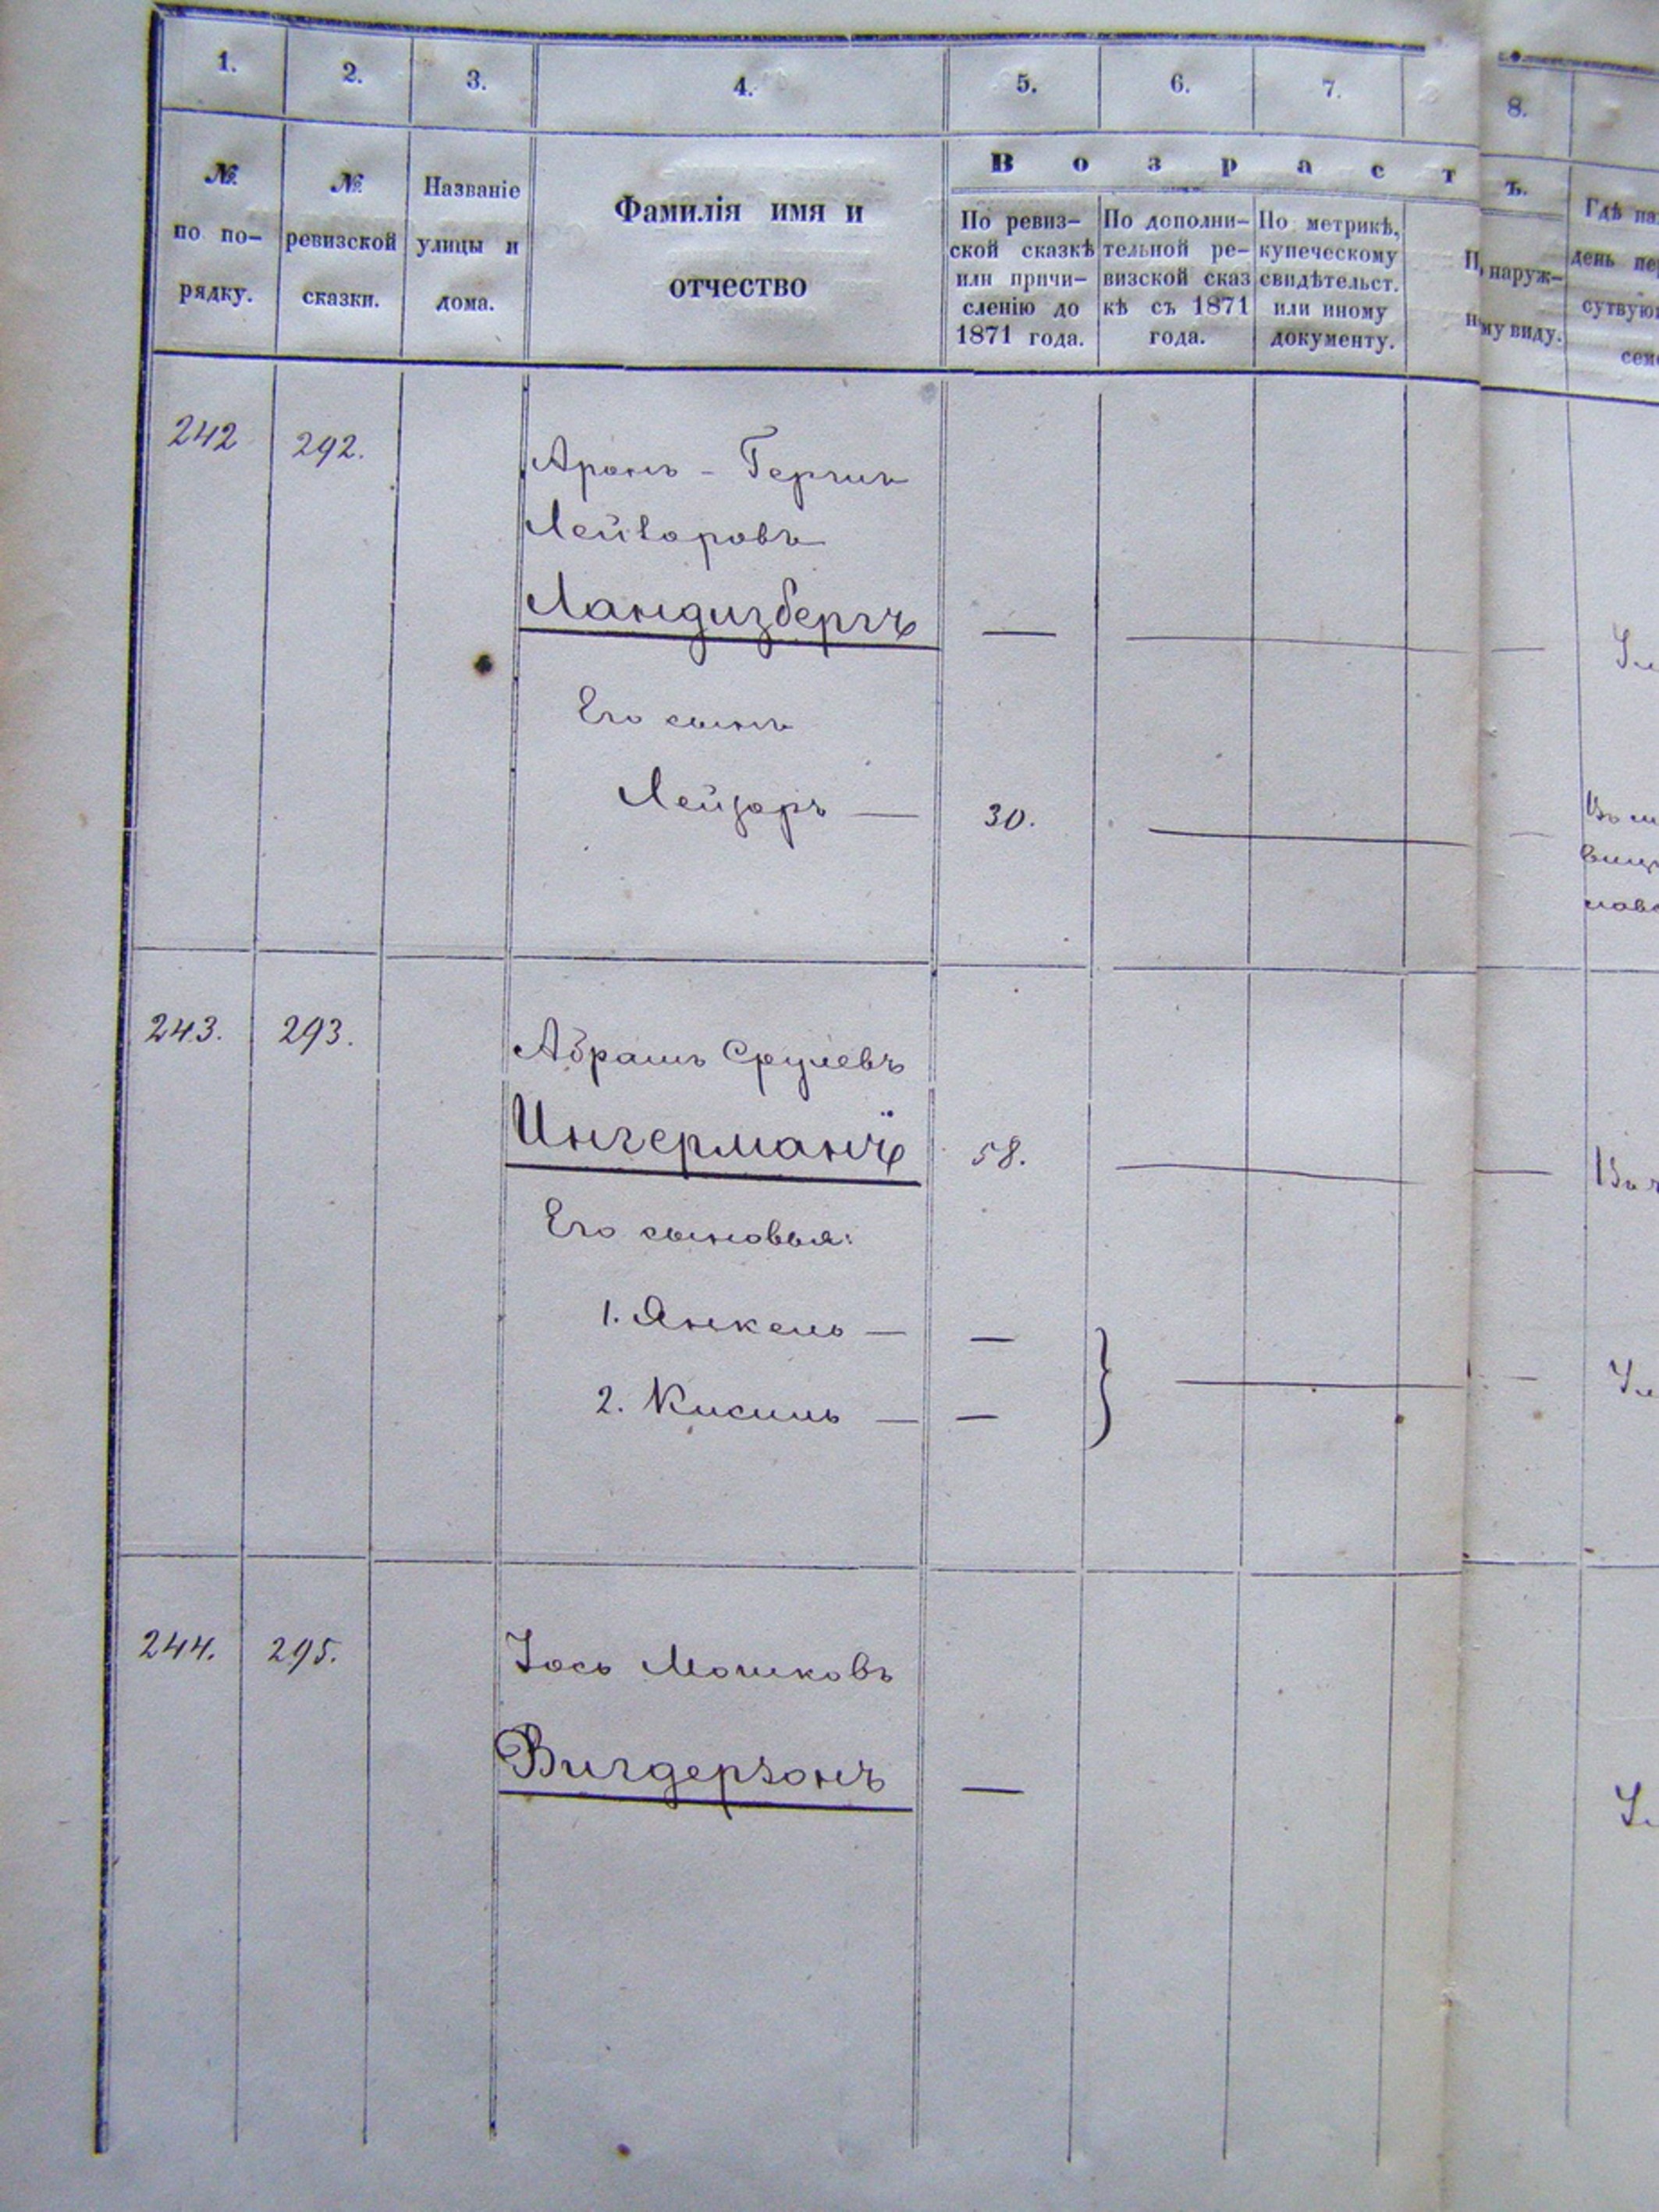 1. 2. 3. 4. 5. 6. 7. 8.
№ по по-рядку.
№ ревизской сказки.
Названіе улицы и дома.
Фамилія имя и
отчество
Возрастъ.
По ревиз-
ской сказкѣ
или причи-
сленію до
1871 года.
По дополни-
тельной ре-
визской сказ
кѣ съ 1871
года.
По метрикѣ,
купеческому
свидѣтельст.
или иному
документу.
наруж-
му виду.
Гдѣ
день
242 292. Аронъ - Гершъ
Лейзоровъ
Ландизбергъ —
Его сынъ
Лейзоръ — 30.
243. 293. Абрамъ Срулевъ
Ингерманъ 58.
Его сыновья:
1. Янкель — —
2. Кисиль — —
244. 295. Іось Мошковъ
Вигдерзонъ —